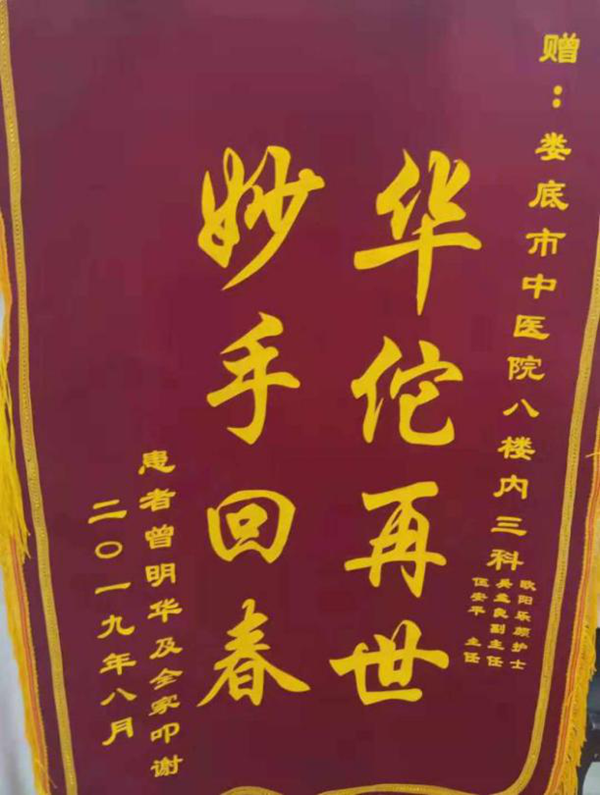 赠：娄底市中医院八楼内三科
欧阳乐颜护士
吴孟良副主任
伍安平 主任
华佗再世
妙手回春
患者曾明华及全家叩谢
二〇一九年八月